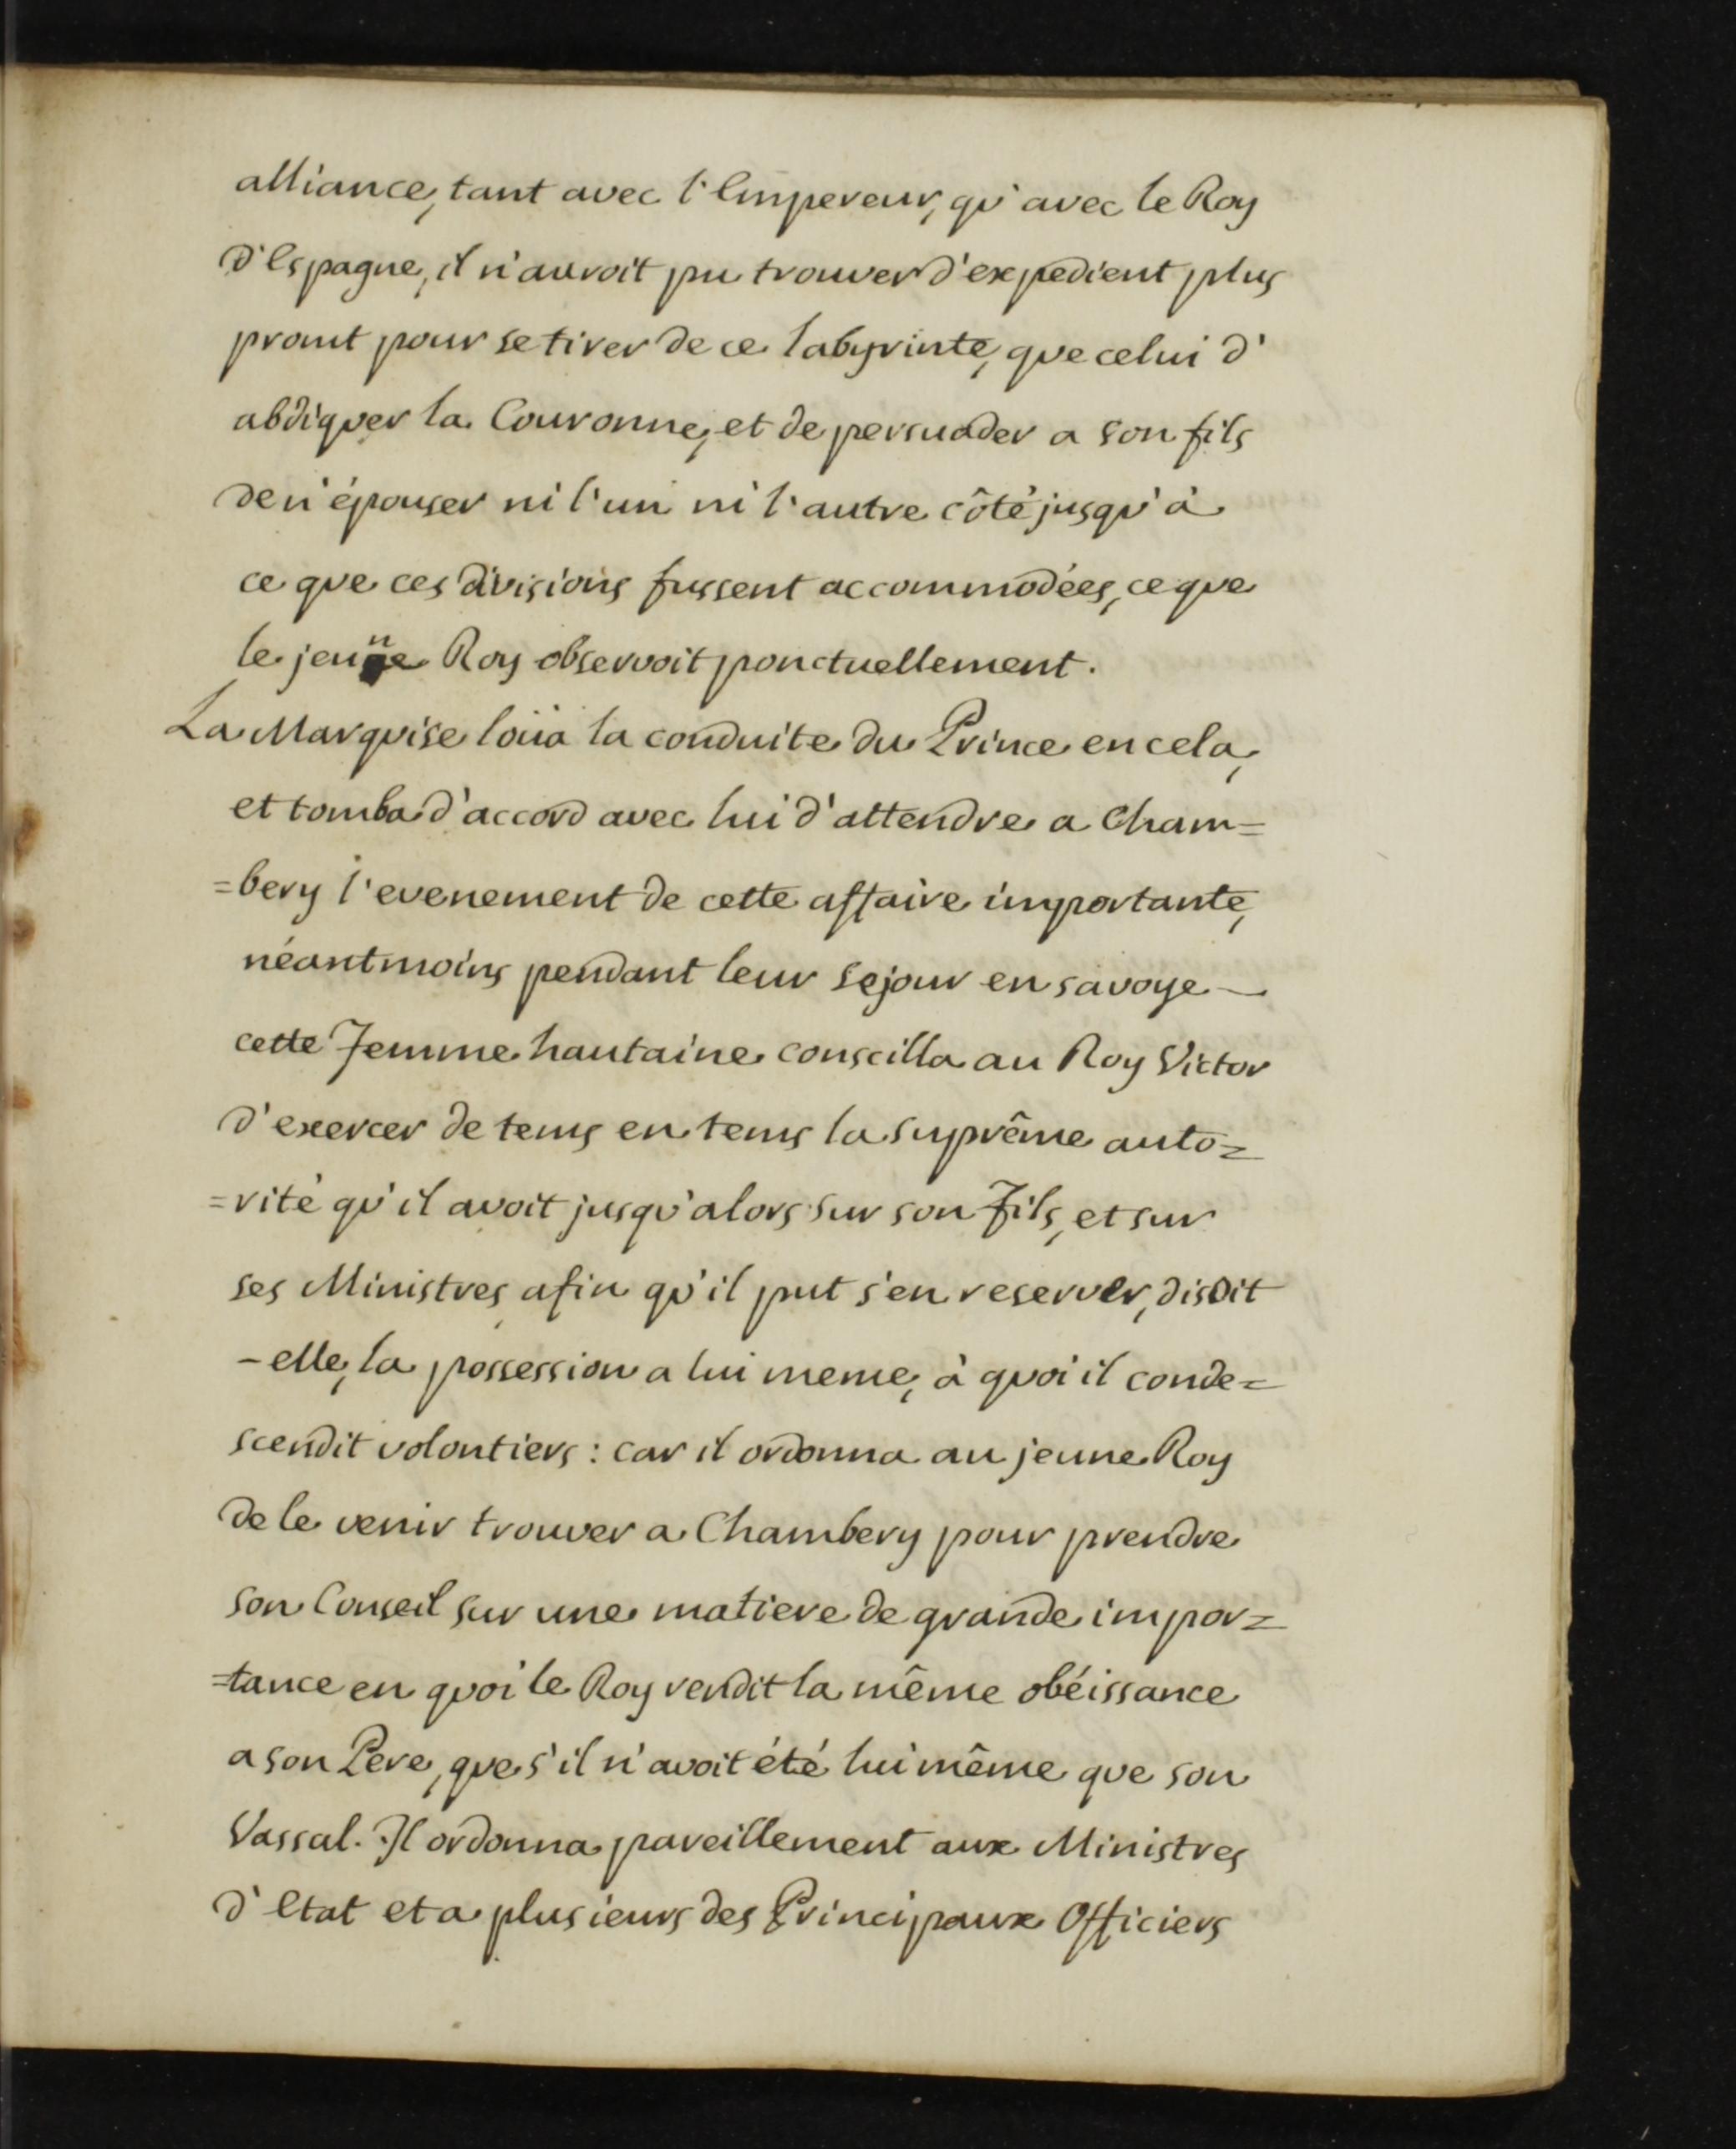 alliance, tant avec l'Empereur, qu'avec le Roy
d'Espagne, il n'auroit pu trouver d'expedient plus
promt pour se tirer de ce labyrinte, que celui d'
abdiquer la Couronne, et de persuader a son fils
de n'épouser ni l'un ni l'autre côté jusqu'à
ce que ces divisions fussent accommodées, ce que
le jeune Roy observoit ponctuellement.
La Marquise loüa la conduite du Prince en cela,
et tomba d'accord avec lui d'attendre a Cham=
=bery l'evenement de cette affaire importante,
néantmoins pendant leur sejour en savoye —
cette Femme hautaine conseilla au Roy Victor
d'exercer de tems en tems la suprême auto=
=rité qu'il avoit jusqu'alors sur son Fils, et sur
ses Ministres afin qu'il put s'en reserver, disoit
-elle, la possession a lui meme, à quoi il conde=
scendit volontiers : car il ordonna au jeune Roy
de le venir trouver a Chambery pour prendre
son Conseil sur une matiere de grande impor=
=tance en quoi le Roy rendit la même obéissance
a son Pere, que s'il n'avoit été lui même que son
Vassal. Il ordonna pareillement aux Ministres
d'Etat et a plusieurs des Principaux Officiers